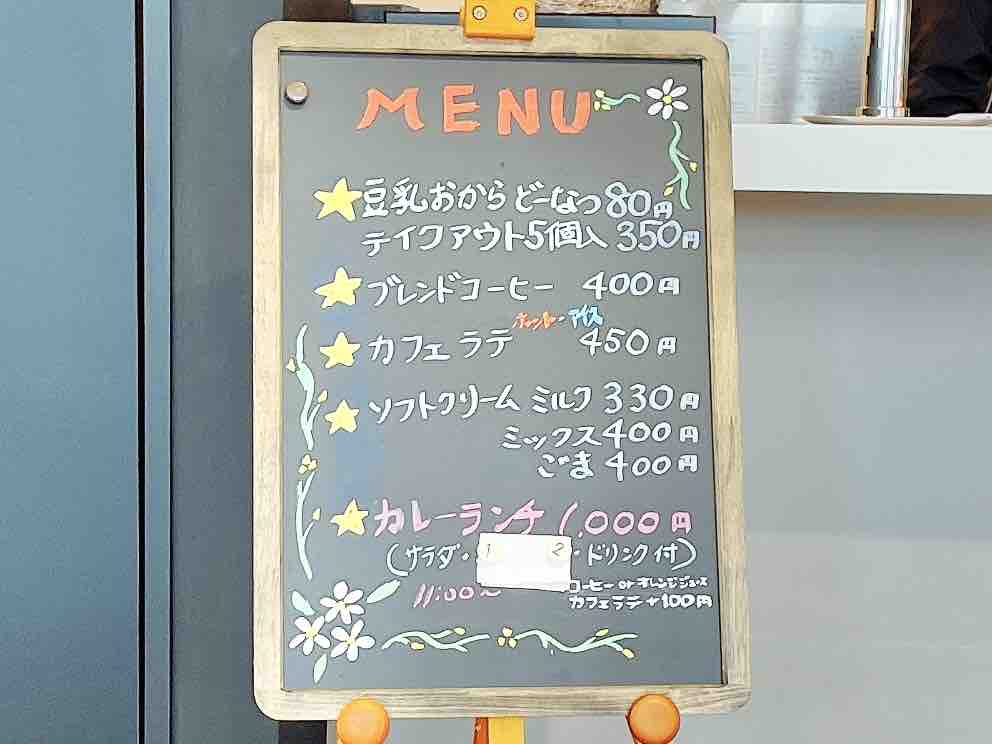 MENU
豆乳おからどーなつ 80円
テイクアウト5個入 350円
ブレンドコーヒー 400円
ホット・アイス
カフェラテ 450円
ソフトクリーム ミルク 330円
ミックス 400円
ごま 400円
カレーランチ 1,000円
(サラダ・ 1 2 ・ドリンク付)
11:00~
コーヒー or オレンジジュース
カフェラテ+100円